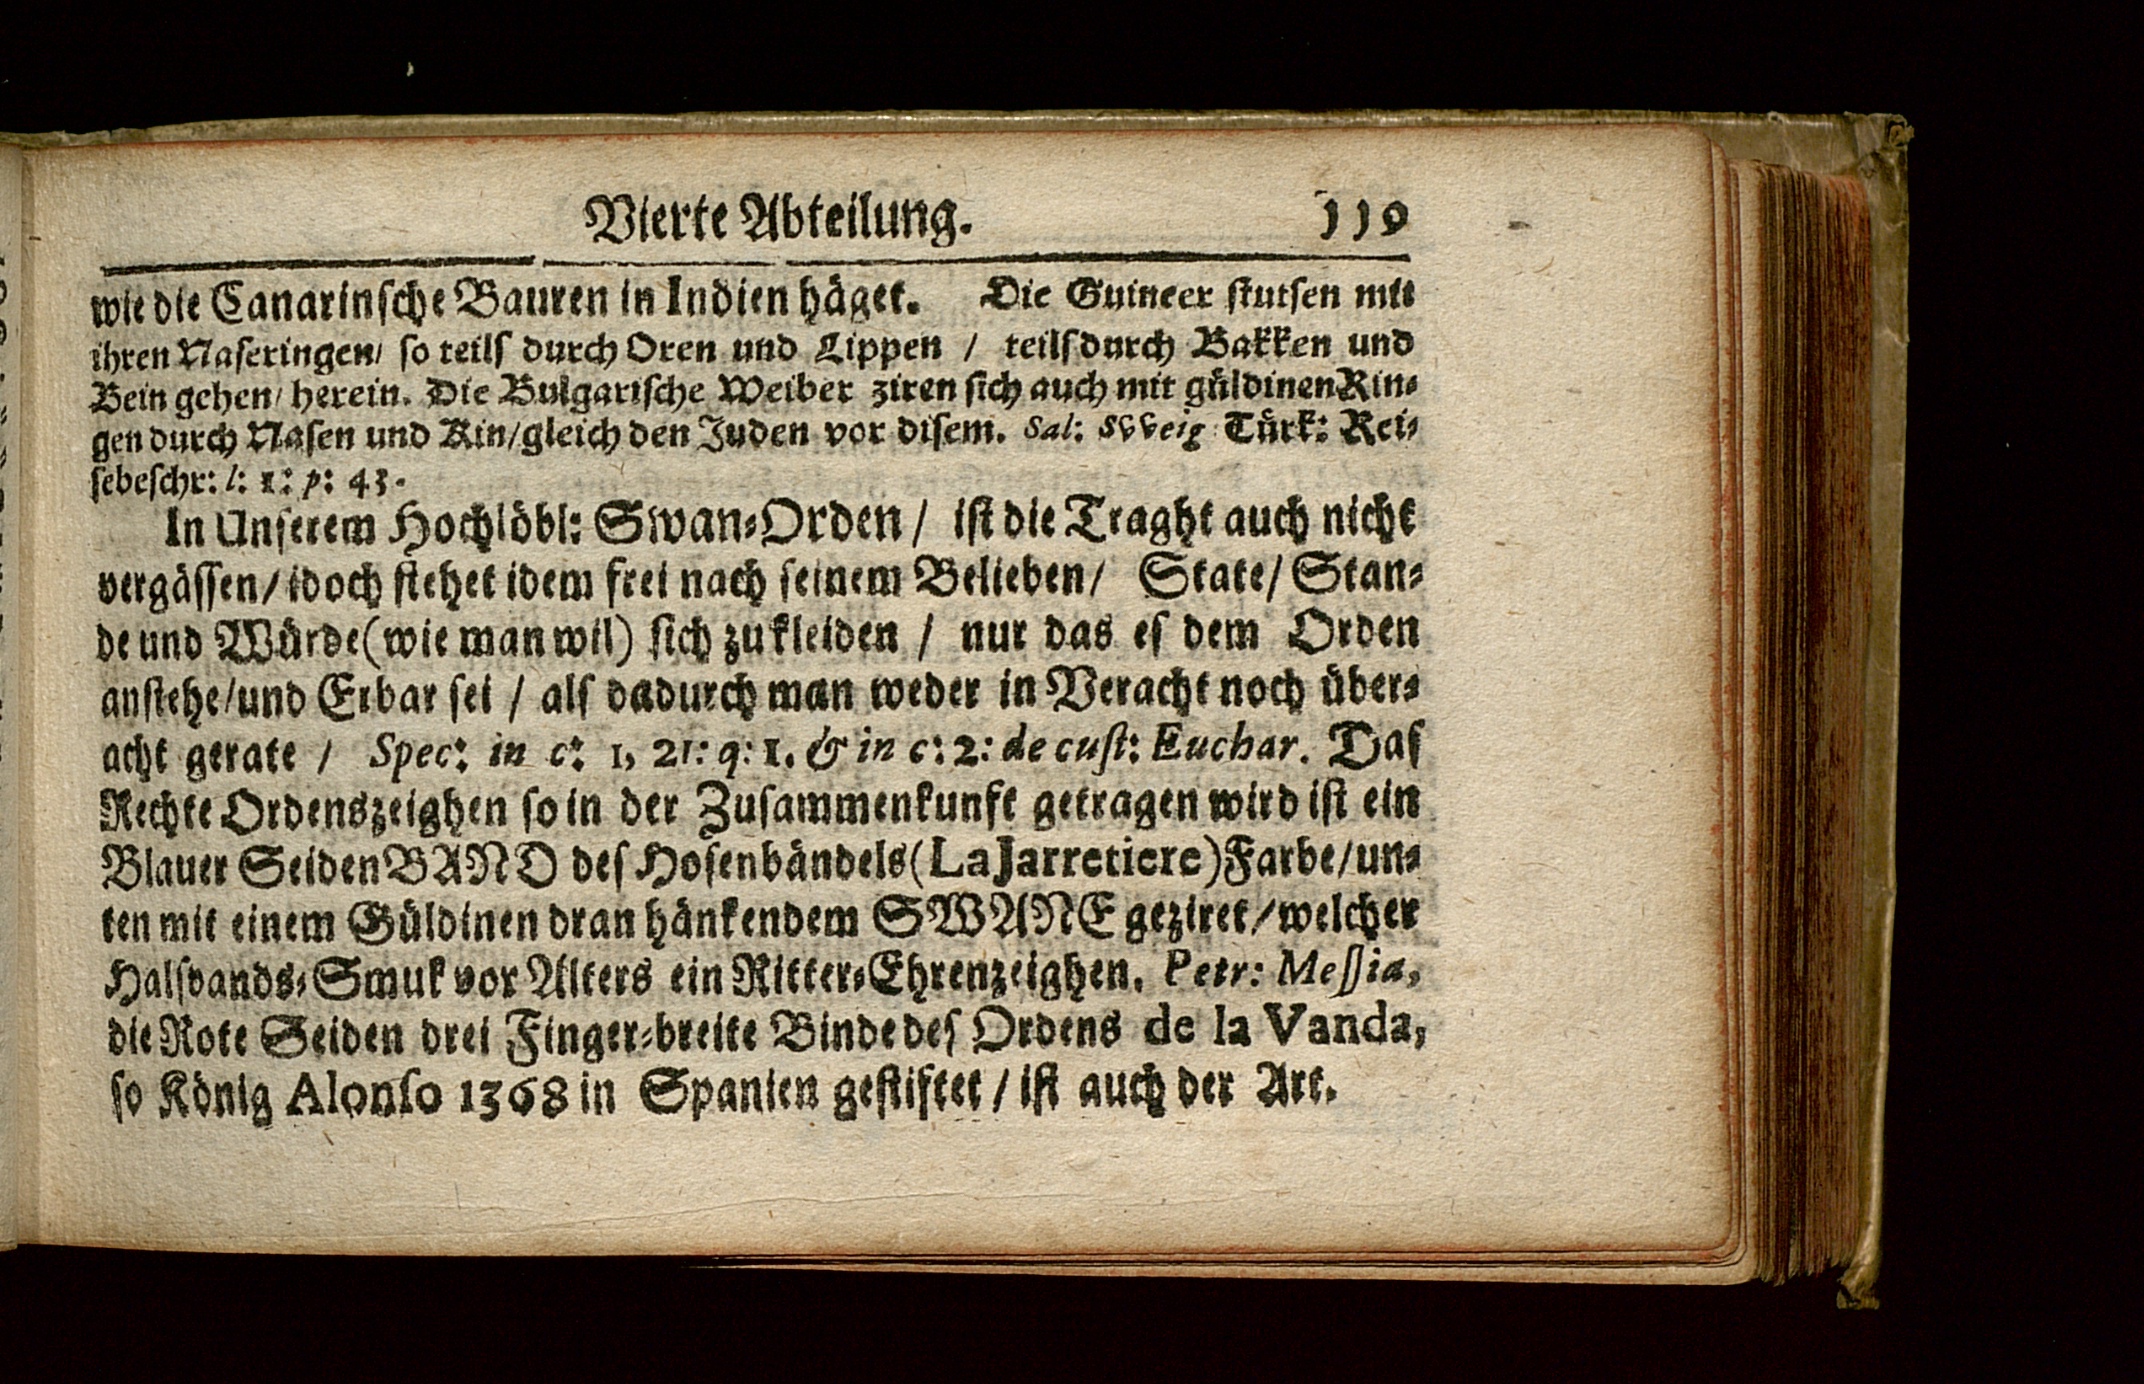 Vierte Abteilung. 119
wie die Canarinsche Bauren in Indien häget. Die Guineer stutsen mit
ihren Naseringen/ so teils durch Oren und Lippen / teils durch Bakken und
Bein gehen/ herein. Die Bulgarische Weiber ziren sich auch mit güldinen Rin-
gen durch Nasen und Kin/gleich den Juden vor disem. Sal: SVVeig Türk: Rei-
sebeschr: l: 1: p: 43.
In Unserem Hochlöbl: Swan-Orden / ist die Traght auch nicht
vergässen/ idoch stehet idem frei nach seinem Belieben/ State/ Stan-
de und Würde(wie man wil) sich zu kleiden / nur das es dem Orden
anstehe/und Erbar sei / als dadurch man weder in Veracht noch über-
acht gerate / Spec: in c: 1, 21: q: 1. & in c: 2: de cust: Euchar. Das
Rechte Ordenszeighen so in der Zusammenkunft getragen wird ist ein
Blauer Seiden BAND des Hosenbändels(La Jarretiere)Farbe/un-
ten mit einem Güldinen dran hänkendem SWANE geziret/welcher
Halsbands-Smuk vor Alters ein Ritter-Ehrenzeighen. Petr: Messia,
die Rote Seiden drei Finger-breite Binde des Ordens de la Vanda,
so König Alonso 1368 in Spanien gestiftet / ist auch der Art.